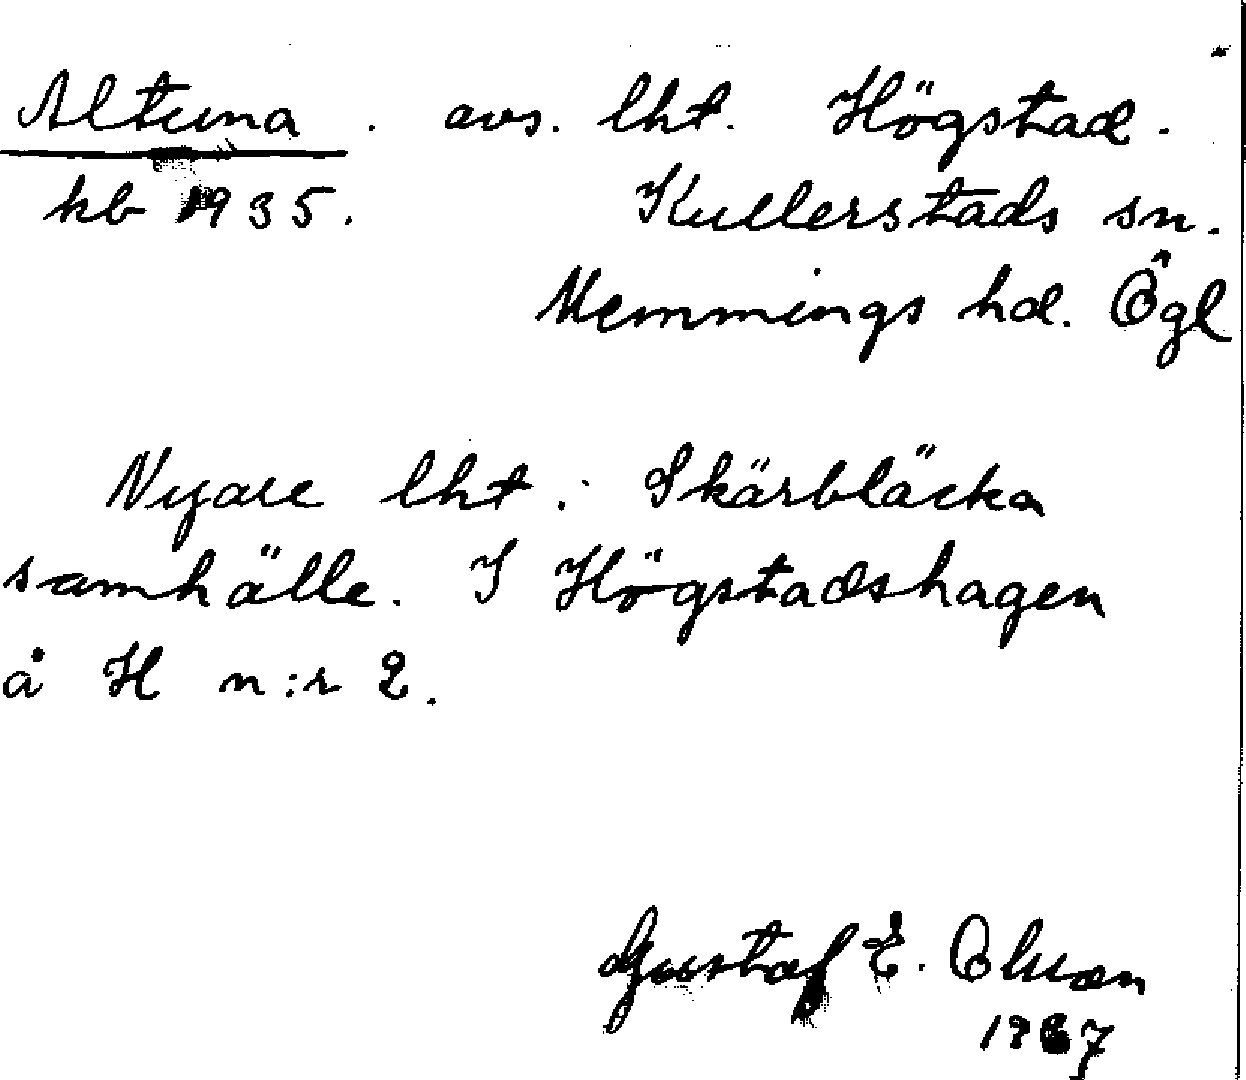 Altuna. avs. lht. Högstad.
kb 1935. Kullerstads sn.
Memmings hd. Ögl
Nyare lht. Skärblacka
samhälle. I Högstadshagen
å H n:r 2.
Gustaf E. Olsson
1937